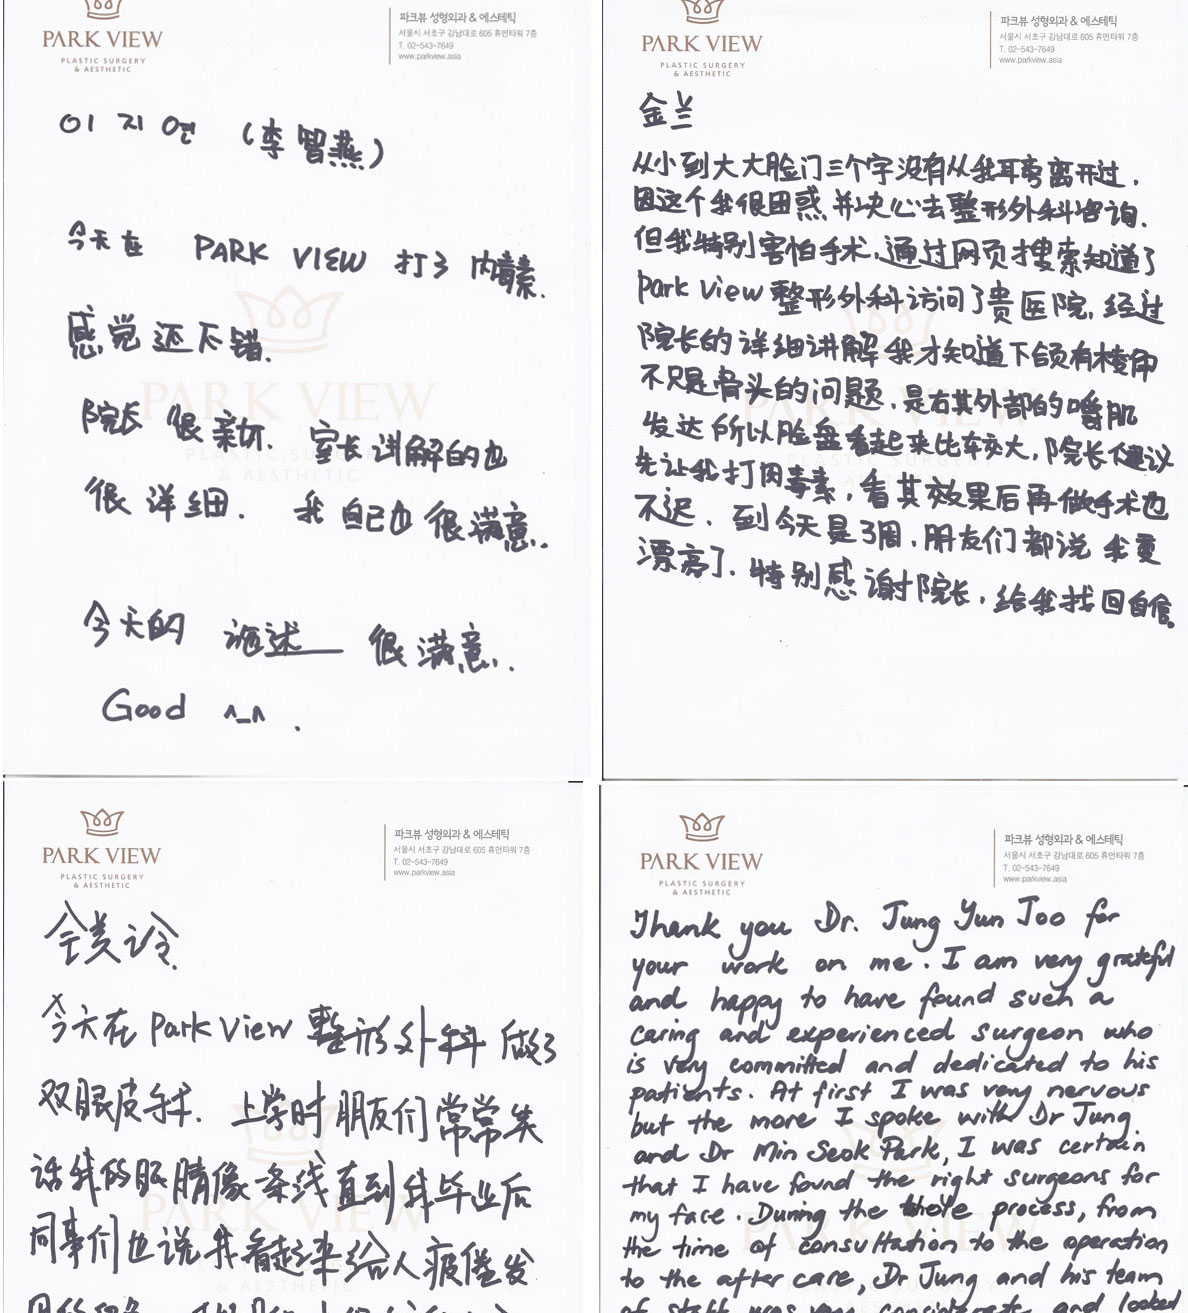 PARK VIEW
PLASTIC SURGERY
& AESTHETIC
파크뷰 성형외과 & 에스테틱
서울시 서초구 강남대로 605 휴먼타워 7층
T. 02-543-7649
www.parkview.asia
이지연 (李智燕)
今天在 PARK VIEW 打了肉毒素.
感觉还不错.
院长很亲切. 室长讲解的也
很详细. 我自己也很满意..
今天的 施述 很满意..
Good ^_^ .
PARK VIEW
PLASTIC SURGERY
& AESTHETIC
PARK VIEW
PLASTIC SURGERY
& AESTHETIC
파크뷰 성형외과 & 에스테틱
서울시 서초구 강남대로 605 휴먼타워 7층
T. 02-543-7649
www.parkview.asia
金兰
从小到大大脸门三个字没有从我耳旁离开过.
因这个我很困惑 并决心去整形外科咨询.
但我特别害怕手术, 通过网页搜索知道了
Park View 整形外科访问了贵医院, 经过
院长的详细讲解我才知道下颌有棱角
不只是骨头的问题, 是右其外部的嚼肌
发达所以脸盘看起来比较大, 院长建议
先让我打肉毒素, 看其效果后再做手术也
不迟. 到今天是3周, 朋友们都说我更
漂亮了. 特别感谢院长, 给我找回自信。
PARK VIEW
PLASTIC SURGERY
& AESTHETIC
파크뷰 성형외과 & 에스테틱
서울시 서초구 강남대로 605 휴먼타워 7층
T. 02-543-7649
www.parkview.asia
今天在 Park View 整形外科 做了
双眼皮手术. 上学时朋友们常常笑
话我的眼睛像一条线直到我毕业后
同事们也说我看起来给人疲倦发
PARK VIEW
PLASTIC SURGERY
& AESTHETIC
파크뷰 성형외과 & 에스테틱
서울시 서초구 강남대로 605 휴먼타워 7층
T. 02-543-7649
www.parkview.asia
Thank you Dr. Jung Yun Joo for
your work on me. I am very grateful
and happy to have found such a
caring and experienced surgeon who
is very committed and dedicated to his
patients. At first I was very nervous
but the more I spoke with Dr Jung.
and Dr Min Seok Park, I was certain
that I have found the right surgeons for
my face. During the whole process, from
the time of consultation to the operation
to the after care, Dr Jung and his team
of staff was very considerate and looked